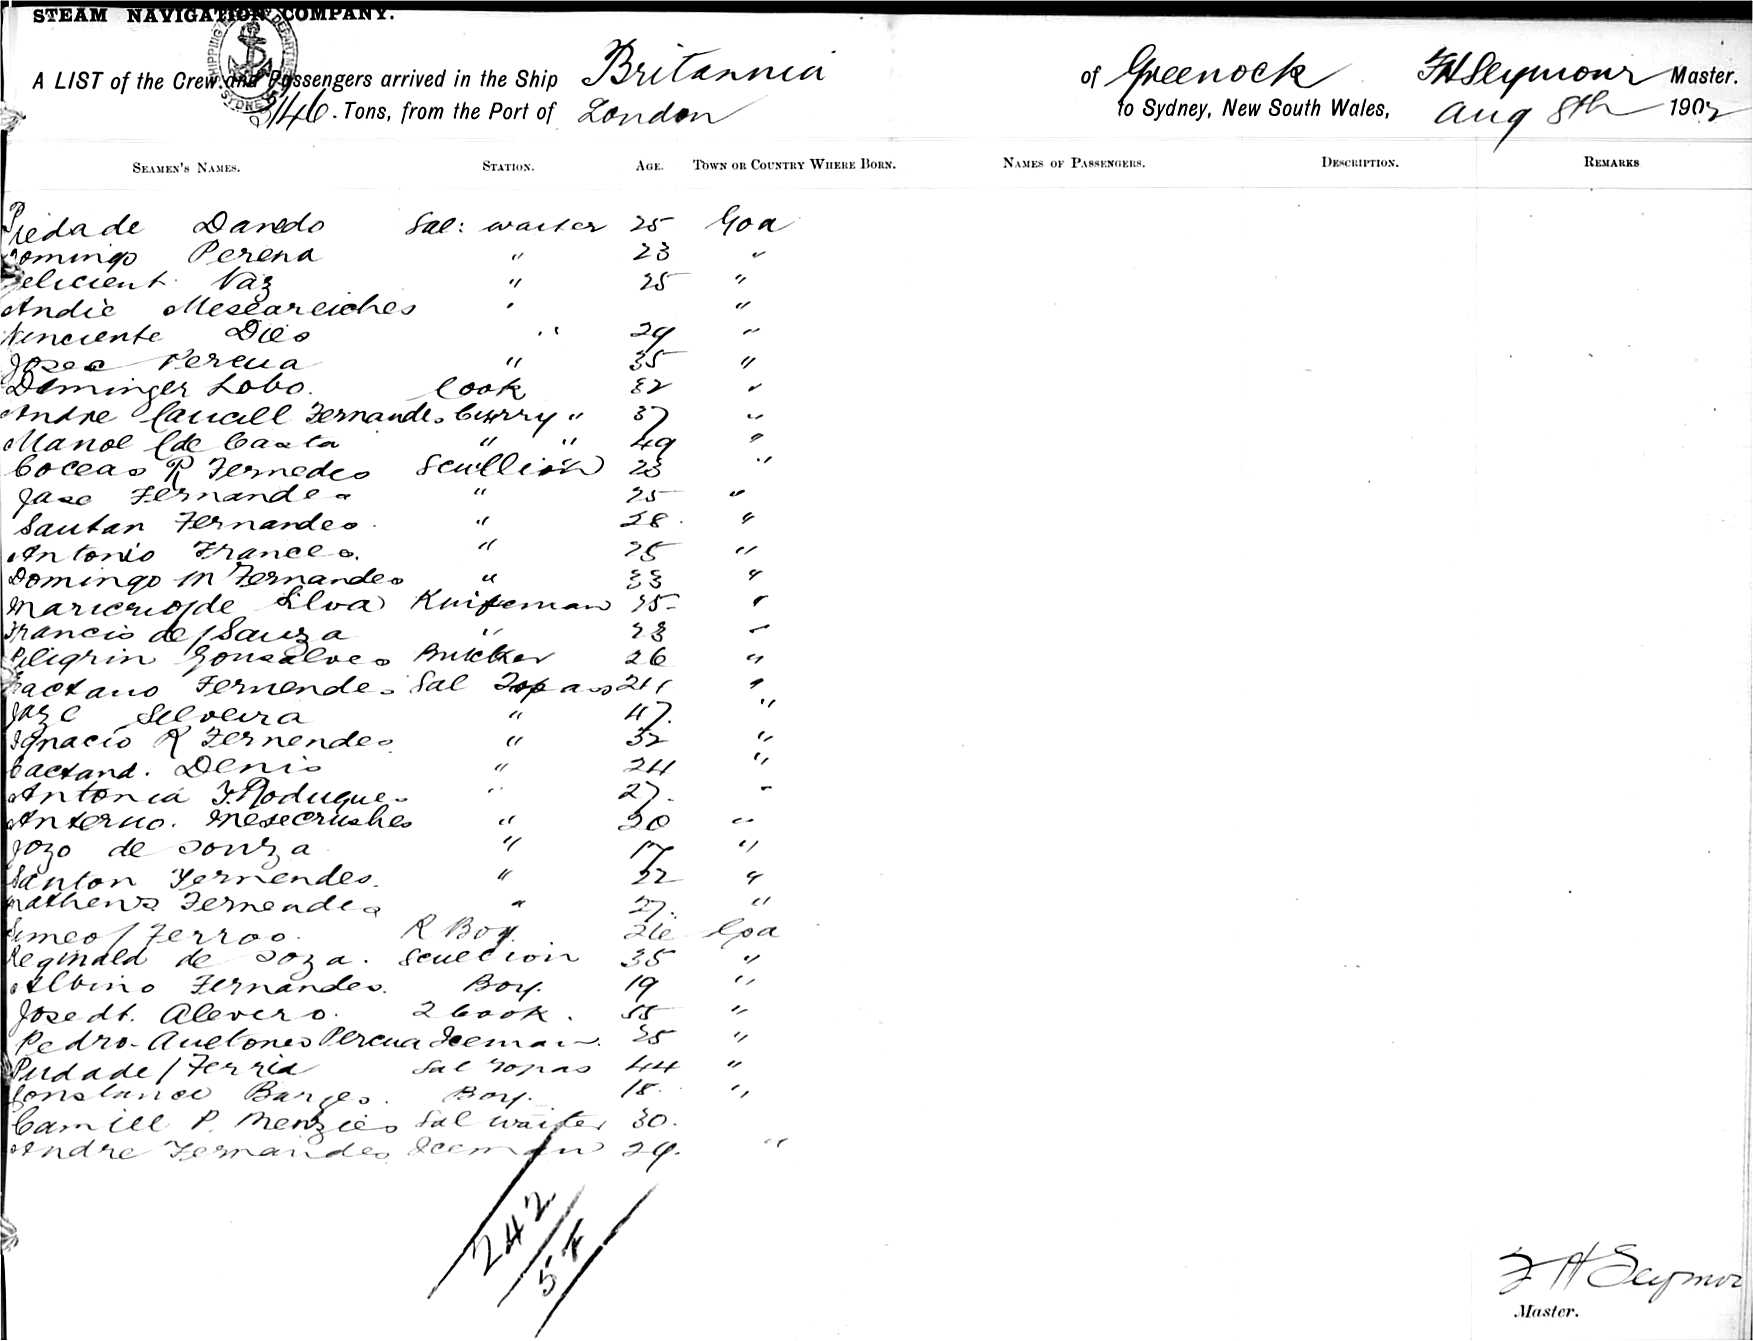 STEAM NAVIGATION COMPANY.
A LIST of the Crew and Passengers arrived in the Ship Britannia of Greenock FH Seymour Master.
3146. Tons, from the Port of London to Sydney, New South Wales, Aug 8th 1902
SEAMEN'S NAMES. STATION. AGE. TOWN OR COUNTRY WHERE BORN. NAMES OF PASSENGERS. DESCRIPTION. REMARKS
Piedade Sal: waiter 25 Goa
Domingo Perena " 23 "
Vaz " 25 "
Andie " "
Dies " 29 "
Perena " 35 "
Dominger Lobo. Cook 32 "
Andre Fernandes Curry " 37 "
Manoel de Casta " " 49 "
Coceas R Fernedes Scullion 23 "
Jase Fernandes " 25 "
Sautan Fernandes. " 28. "
Antonio Frances. " 25 "
Domingo M Fernandes " 33 "
de Silva Knifeman 25 "
Francis de Sauza " 23 "
Piligrin Gonsalves Butcher 26 "
Caetano Fernendes Sal Topas 24 "
Joze Silveira " 47. "
Ignacio R Fernendes " 32 "
Caetand. Denis " 24 "
Antonia F. Rodugues " 27. "
" 20 "
Jozo de Souza " 17 "
Santon Fernendes. " 22 "
Mathews Fernendes " 27. "
Simeo Ferrao. R Boy. 26 Goa
Reginald de Soza. Scullion 35 "
Albino Fernandes. Boy. 19 "
Alevero. 2 Cook. 55 "
Pedro Perena Iceman. 25 "
Ferria Sal Topas 44 "
Constance Barges. Boy. 18. "
Camill P. Menzies Sal waiter 30.
Andre Fernandes Iceman 29. "
242
54
F H Seymour
Master.